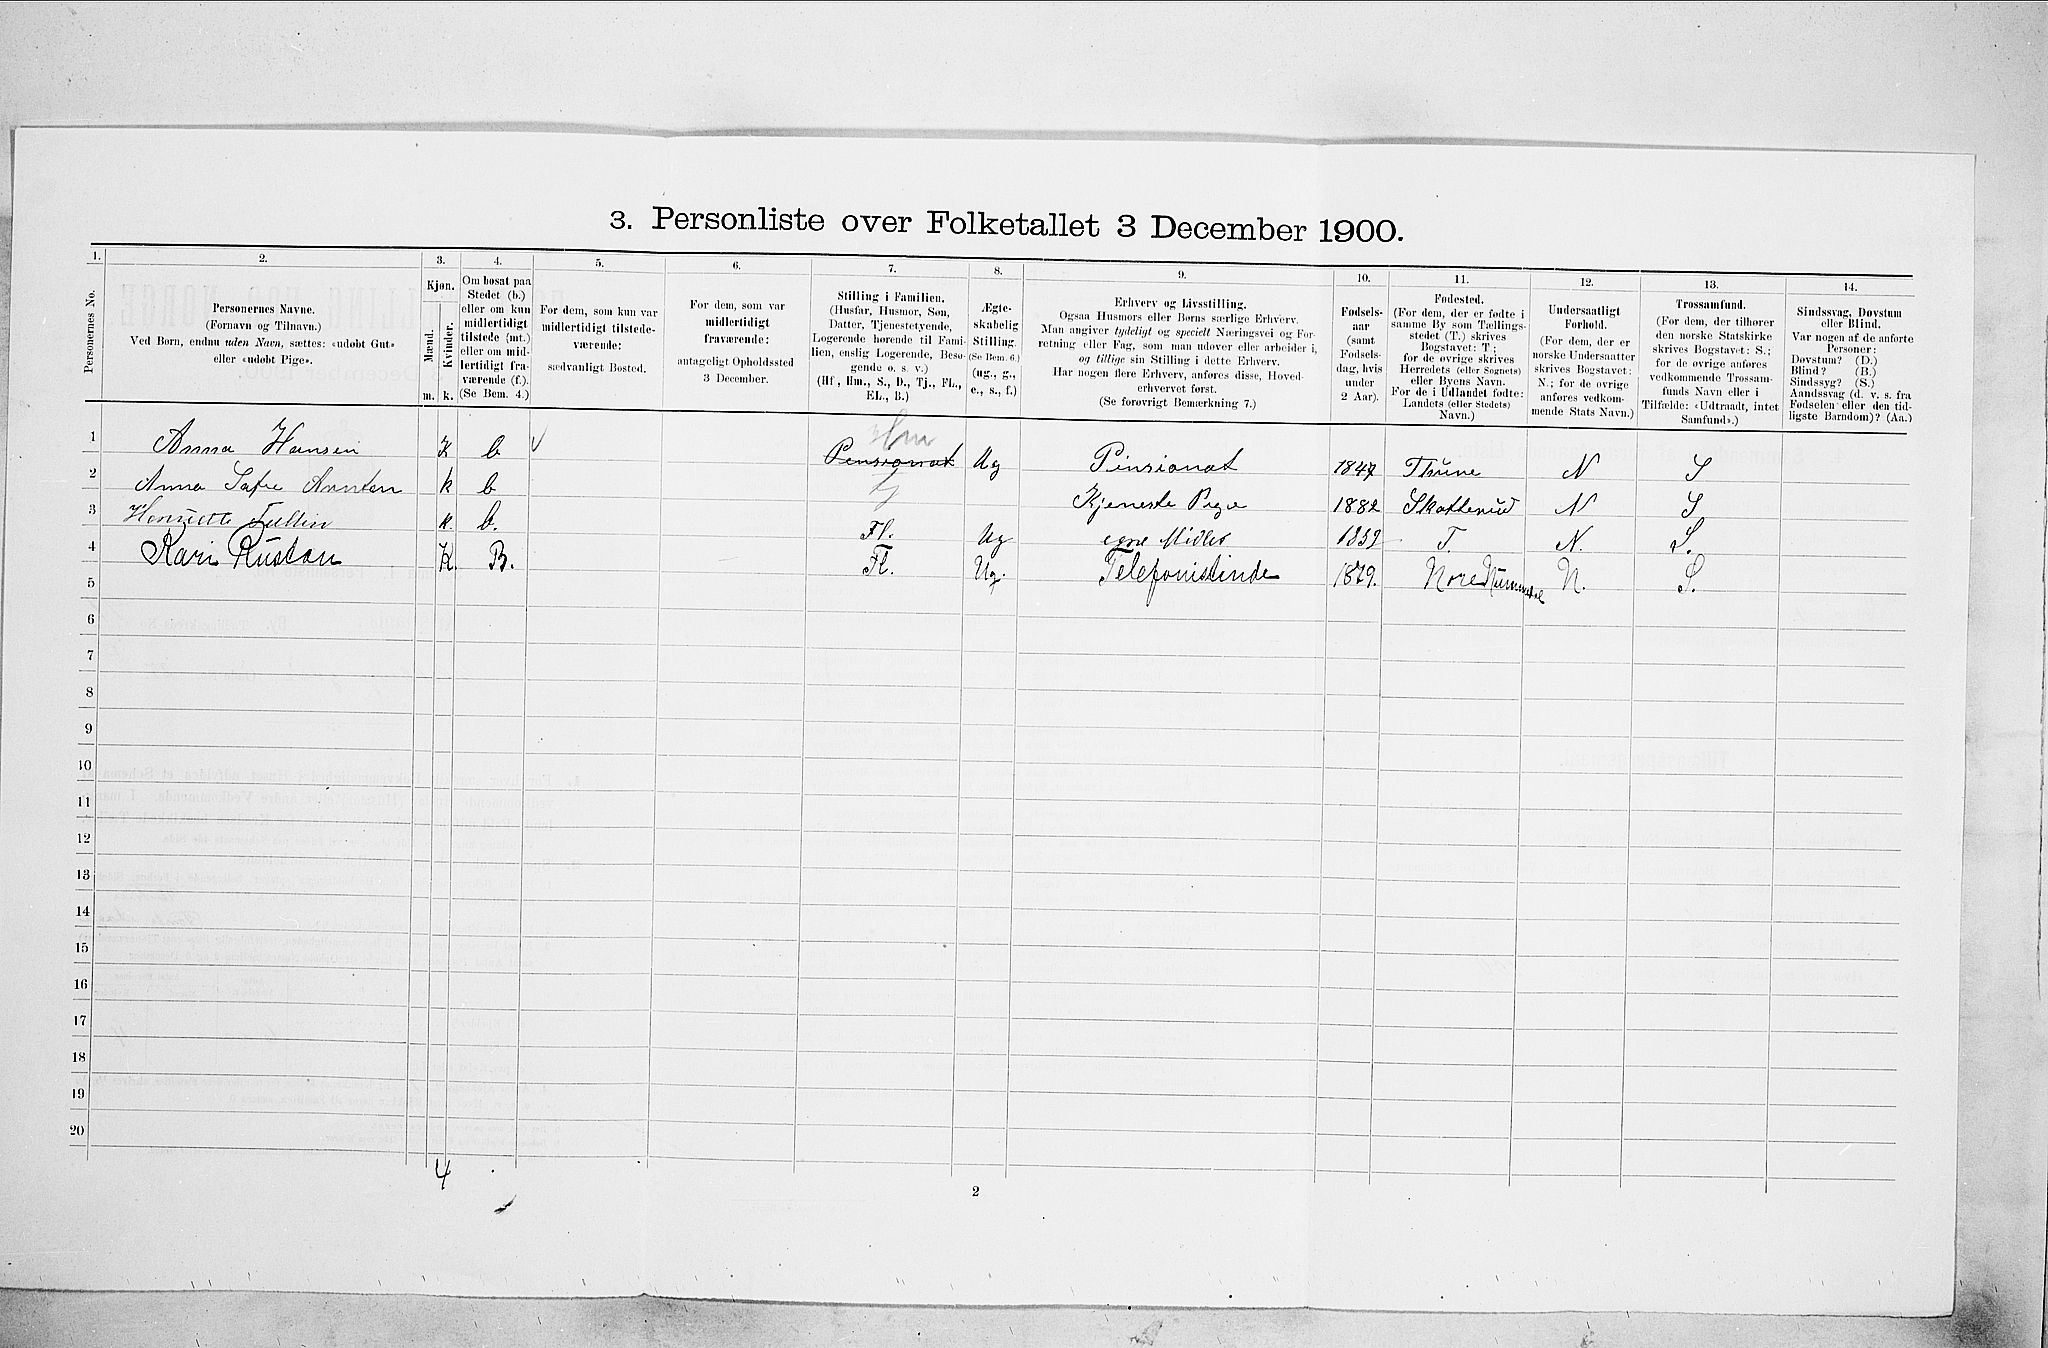 3. Personliste over Folketallet 3 December 1900.
1. 2. 3. 4. 5. 6. 7. 8. 9. 10. 11. 12. 13. 14.
Personernes No.
Personernes Navne.
(Fornavn og Tilnavn.)
Ved Børn, endnu uden Navn, sættes: «udøbt Gut»
eller «udøbt Pige».
Kjøn.
Mænd.
Kvinder.
m. k.
Om bosat paa
Stedet (b.)
eller om kun
midlertidigt
tilstede (mt.)
eller om mid-
lertidigt fra-
værende (f.).
(Se Bem. 4.)
For dem, som kun var
midlertidigt tilstede-
værende:
sædvanligt Bosted.
For dem, som var
midlertidigt
fraværende:
antageligt Opholdssted
3 December.
Stilling i Familien.
(Husfar, Husmor, Søn,
Datter, Tjenestetyende,
Logerende hørende til Fami-
lien, enslig Logerende, Besø-
gende o. s. v.)
(Hf., Hm., S., D., Tj., Fl.,
EL., B.)
Ægte-
skabelig
Stilling.
(Se Bem. 6.)
(ug., g.,
e., s., f.)
Erhverv og Livsstilling.
Ogsaa Husmors eller Børns særlige Erhverv.
Man angiver tydeligt og specielt Næringsvei og For-
retning eller Fag, som man udøver eller arbeider i,
og tillige sin Stilling i dette Erhverv.
Har nogen flere Erhverv, anføres disse, Hoved-
erhvervet først.
(Se forøvrigt Bemærkning 7.)
Fødsels-
aar
(samt
Fødsels-
dag, hvis
under
2 Aar).
Fødested.
(For dem, der er fødte i
samme By som Tællings-
stedet (T.) skrives
Bogstavet: T.;
for de øvrige skrives
Herredets (eller Sognets)
eller Byens Navn.
For de i Udlandet fødte:
Landets (eller Stedets)
Navn.)
Undersaatligt
Forhold.
(For dem, der er
norske Undersaatter
skrives Bogstavet:
N.; for de øvrige
anføres vedkom-
mende Stats Navn.)
Trossamfund.
(For dem, der tilhører
den norske Statskirke
skrives Bogstavet: S.;
for de øvrige anføres
vedkommende Trossam-
funds Navn eller i
Tilfælde: «Udtraadt, intet
Samfund».)
Sindssvag, Døvstum
eller Blind.
Var nogen af de anførte
Personer:
Døvstum? (D.)
Blind? (B.)
Sindssyg? (S.)
Aandssvag (d. v. s. fra
Fødselen eller den tid-
ligste Barndom)? (Aa.)
1 Anna Hansen K b Hm Pensionat Ug Pensionat 1847 Thune N S
2 Anna k b Kjeneste Pige 1882 Skatterud N S
3 Henriette Tullin k. b. Fl. Ug egne Midler 1839 T. N. S.
4 Kari Rustan K. B. Fl. Ug. Telefonistinde 1879. Nore Nummedal N. S.
5
6
7
8
9
10
11
12
13
14
15
16
17
18
19
20
4
2